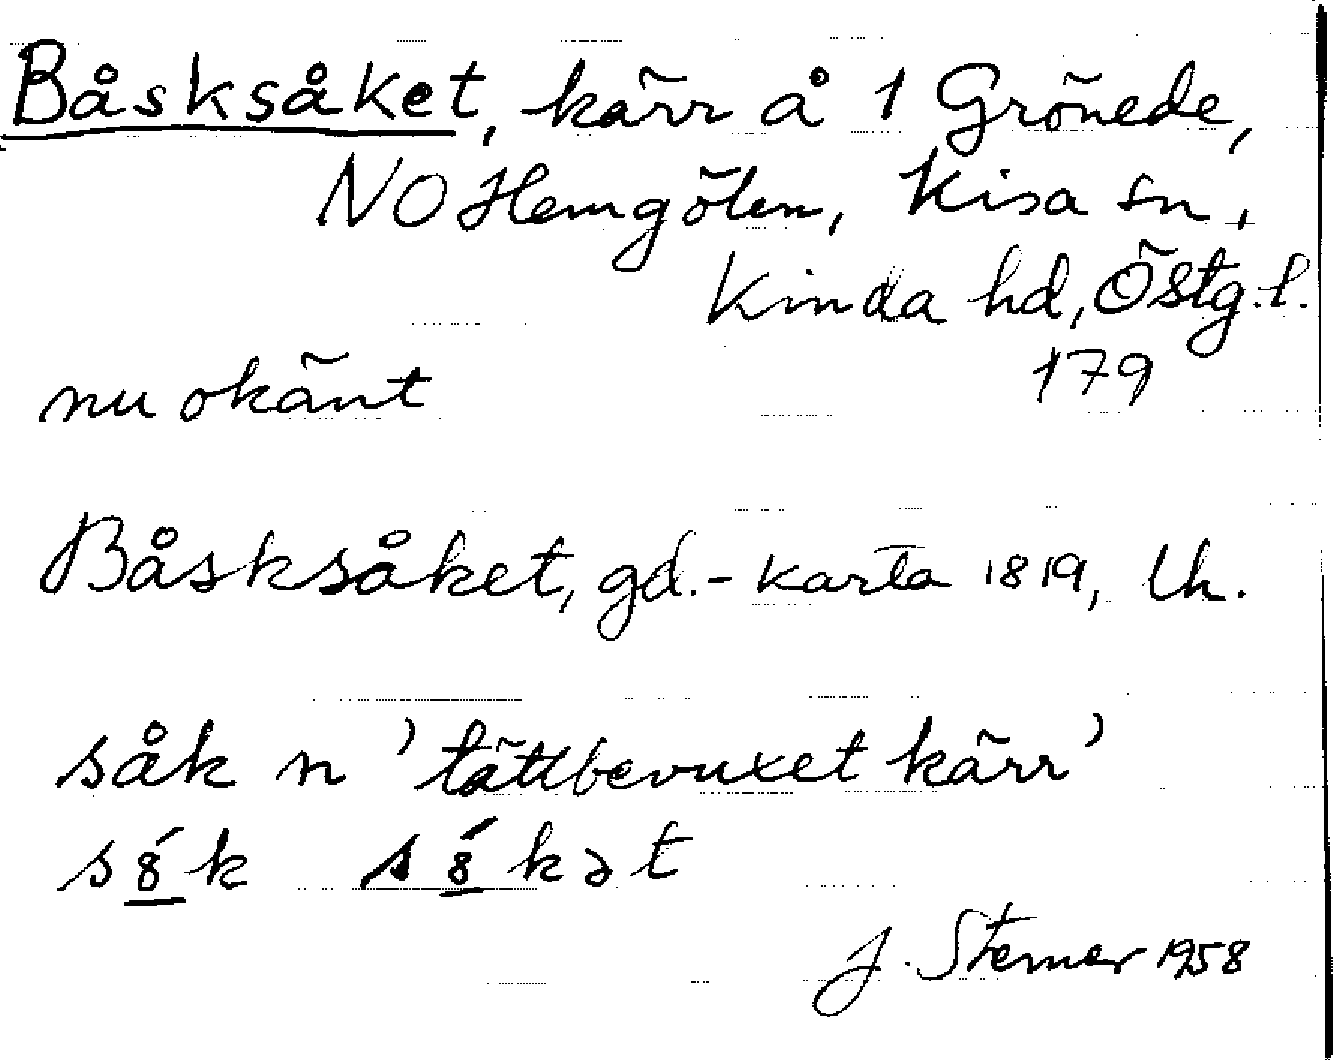 Båsksåket, kärr å 1 Grönede,
NO Hemgölen, Kisa sn,
Kinda hd, Östg.l.
179
nu okänt
Båsksåket, gd.-karta 1819, Uh.
såk n 'tättbevuxet kärr'
s8́k s8́kət
J. Sterner 1958